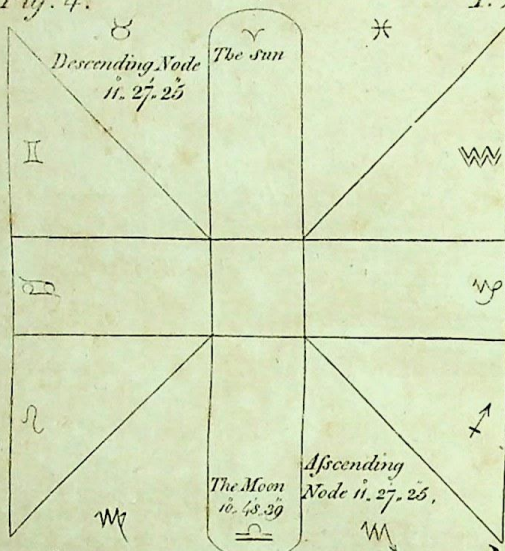 Fig. 4.
♉ ♈ ♓
Descending Node
11. 27. 25
The Sun
♊
♒
♋
♑
♌
♐
The Moon
10. 48. 39
Afscending
Node 11. 27. 25,
♍ ♎ ♏